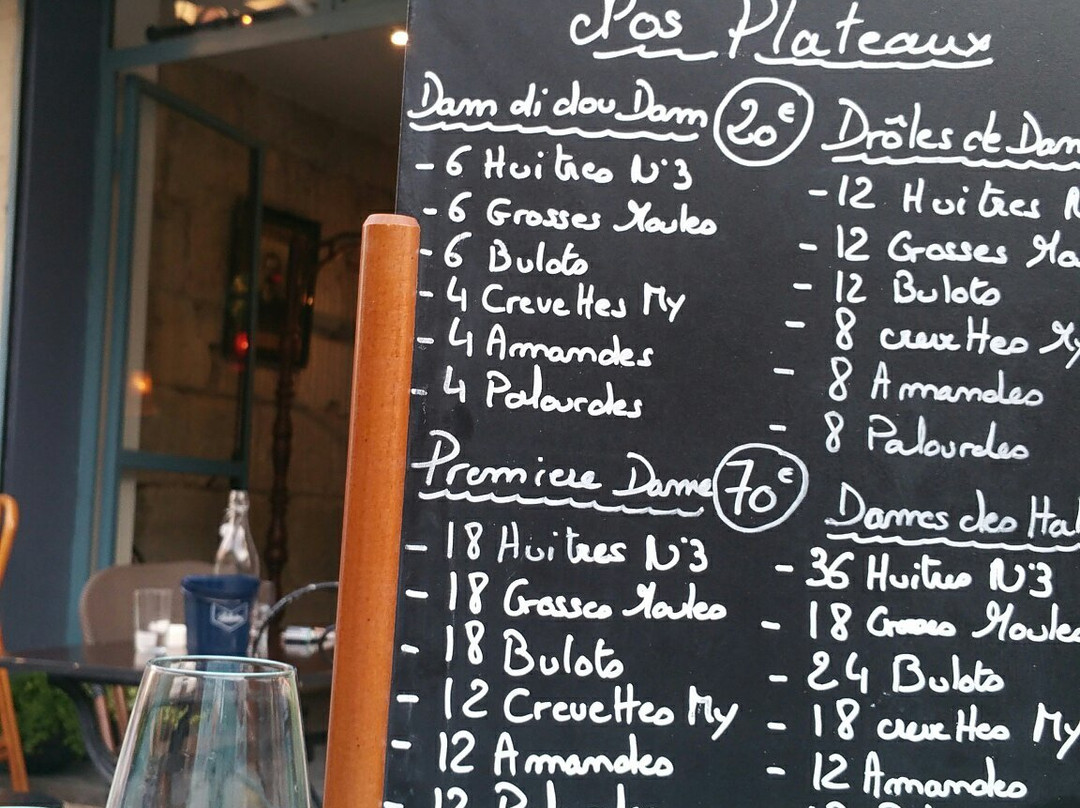 Nos Plateaux
Dam di dou Dam 20€
- 6 Huitres N°3
- 6 Grosses Moules
- 6 Bulots
- 4 Crevettes My
- 4 Amandes
- 4 Palourdes
Première Dame 70€
- 18 Huitres N°3
- 18 Grosses Moules
- 18 Bulots
- 12 Crevettes My
- 12 Amandes
- 12
Drôles de Dam
- 12 Huitres N
- 12 Grosses Mo
- 12 Bulots
- 8 crevettes My
- 8 Amandes
- 8 Palourdes
Dames des Hal
- 36 Huitres N°3
- 18 Grosses Moules
- 24 Bulots
- 18 crevettes My
- 12 Amandes